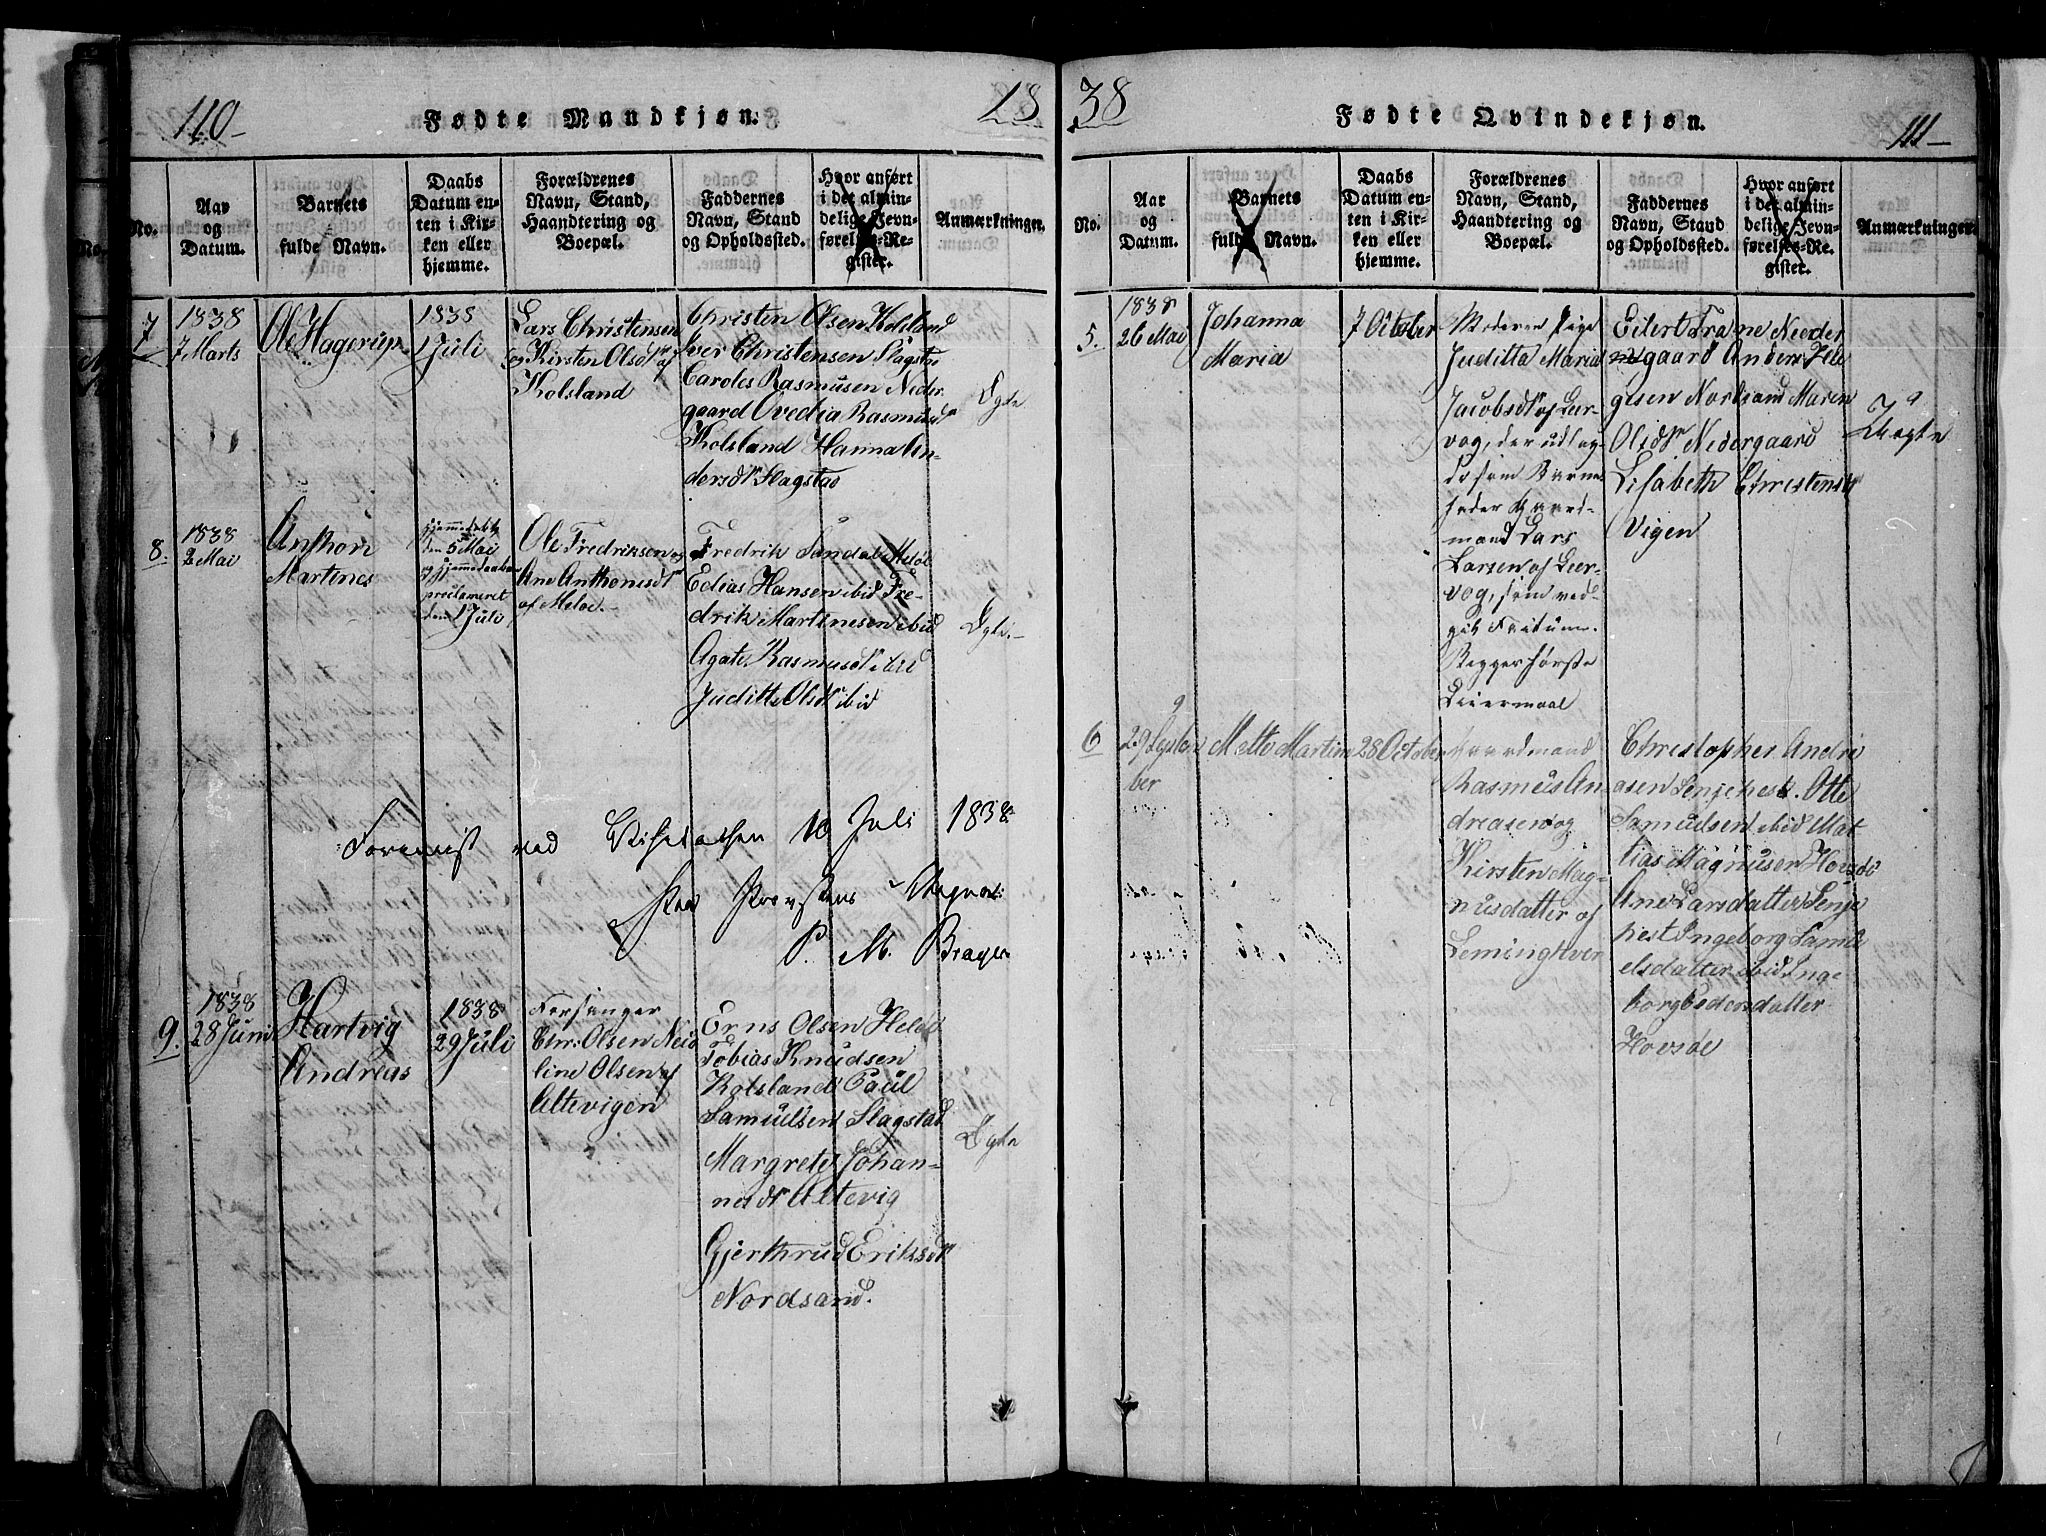 110-
Fødte Mandkjøn.
18
No.
Aar
og
Datum.
Barnets
fulde Navn.
Daabs
Datum en-
ten i Kir-
ken eller
hjemme.
Forældrenes
Navn, Stand,
Haandtering og
Boepæl.
Faddernes
Navn, Stand
og Opholdssted.
Hvor anført
i det almin-
delige Jevn-
førelses-Re-
gister.
Anmærkninger.
7
1838
7 Marts
Ole Hagerup
1838
1 Juli
Lars Christensen
og Kirsten Olsdtr af
Kolsland
Christen Olsen Kolsland
Iver Christensen Slagstad
Caroles Rasmusen Neder
gaard Ovedia Rasmusdtr
Kolsland Hanna An-
dersdtr Slagstad
Egte
8.
1838
2 Mai
Anthon
Martines
hjemmedøbt
den 5 Mai
og hjemmedaaben
proclameret
den 1 Juli
Ole Fredriksen og
Ane Anthonisdtr
af Meløe.-
Fredrik Sandal Meløe
Edias Hansen ibid Fre-
drik Martinesen ibid
Agate Rasmusdtr ibid
Juditte Olsdtr ibid
Egte.-
Foreviist ved Visitatsen 10 Juli 1838
P. M. Brager
9.
1838
28 Juni
Hartvig
Andreas
1838
29 Juli
Forsanger
Chr: Olsen Neid
line Olsen af
Altevigen
Erns Olsen Heløe
Tobias Knudsen
Kolsland Paul
Samuelsen Slagstad
Margrete Johan-
nesdtr Altevig
Gjerthrud Eriksdtr
Nordsand.
Egte
38
Fødte Qvindekjøn.
111-
No.
Aar
og
Datum.
Barnets
fulde Navn.
Daabs
Datum en-
ten i Kir-
ken eller
hjemme.
Forældrenes
Navn, Stand,
Haandtering og
Boepæl.
Faddernes
Navn, Stand
og Opholdssted.
Hvor anført
i det almin-
delige Jevn-
førelses-Re-
gister.
Anmærkninger.
5.
1838
26 Mai
Johanna
Maria
7 October
Moderen Pige
Juditta Maria
Jacobsdtr af Leer-
vog, der udlag-
de som Barne-
fader Gaard-
mand Lars
Larsen af Leer-
vog, som ved-
gik Fritum.
Begges første
Leiermaal
Eilert Trane Neder
gaard Anders Hel
gesen Nordsand Maren
Olsdtr Nedergaard
Lisabeth Christensdtr
Vigen
Uegte
6
29 Septem
ber
Mette Martine
28 October
Gaardmand
Rasmus An
dreasen og
Kirsten Mag-
nusdatter af
Leminghver
Christopher Andri
asen Senjehest. Otte
Samuelsen ibid Mat
tias Magnusen Hovsøe
Ane Larsdatter Senje
hest Ingeborg Samu
elsdatter ibid Inge
borg Pedersdatter
Hovsøe